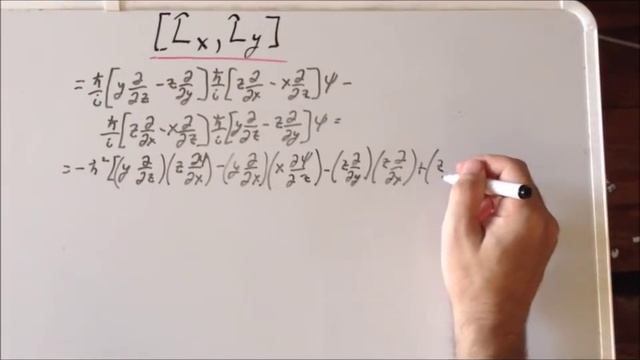 [L̂x, L̂y]
= ħ/i [y ∂/∂z − z ∂/∂y] ħ/i [z ∂/∂x − x ∂/∂z] ψ −
ħ/i [z ∂/∂x − x ∂/∂z] ħ/i [y ∂/∂z − z ∂/∂y] ψ =
= −ħ² [(y ∂/∂z)(z ∂ψ/∂x) − (y ∂/∂x)(x ∂ψ/∂z) − (z ∂/∂y)(z ∂/∂x) + (z